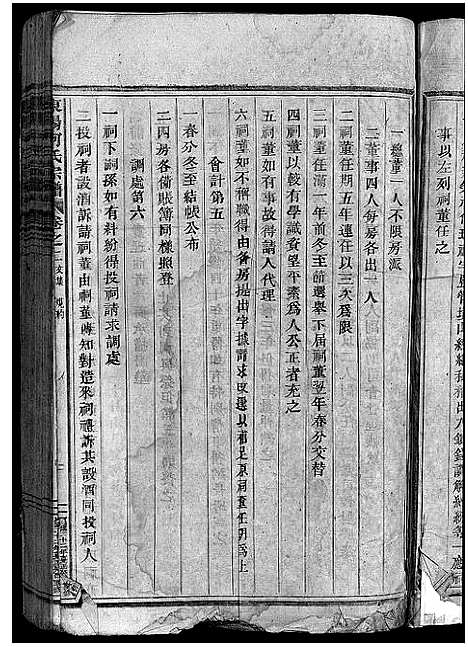 事以左列祠董任之
一總董一人不限房派
二董事四人每房各出一人
二祠董任期五年連任以三次為限
三祠董任滿一年前冬至前選舉下屆祠董翌年春分交替
四祠董以較有學識資望平素為人公正者充之
五祠董如有事故得請人代理
六祠董如不稱職得由各房提出字據請求改選以補足原祠董任期為止
會計第五
一春分冬至結帳公布
二四房各備賬簿同樣照登
調處第六
一祠下嗣孫如有糾紛得投祠請求調處
二投祠者設酒訴請祠董由祠董通知對造來祠禮訴其設酒同投祠人
東陽何氏宗譜 卷之二